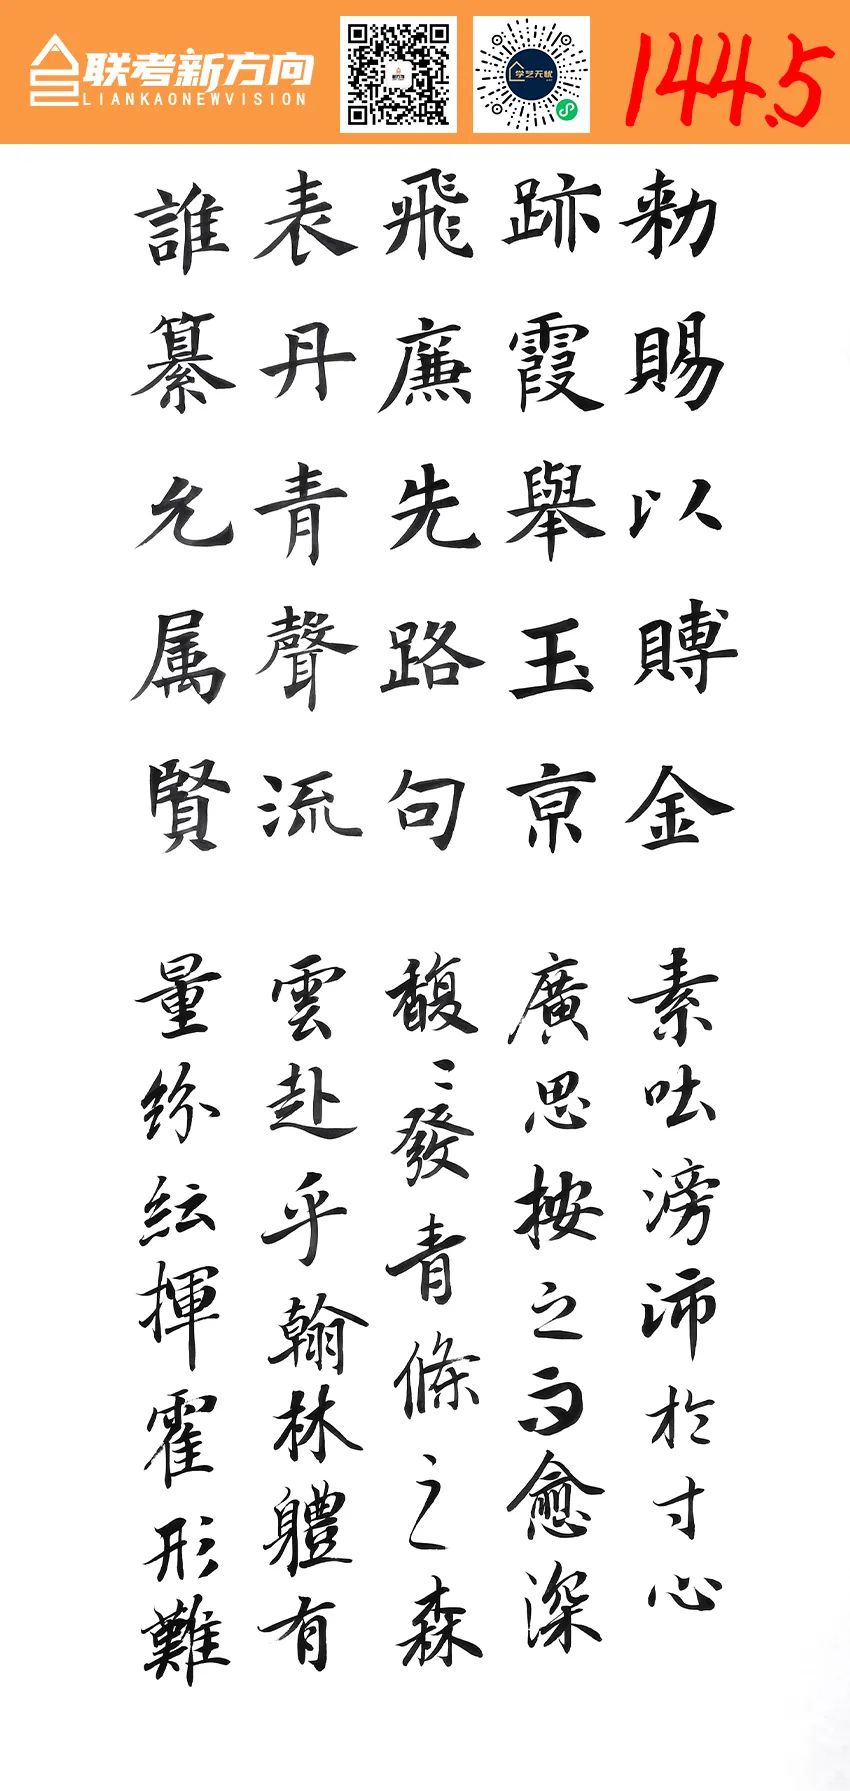 联考新方向
LIANKAONEWVISION
学艺无忧
144.5
勅賜以賻金
跡霞舉玉京
飛廉先路句
表丹青聲流
誰纂允属賢
素呔滂沛於寸心
廣思按之而愈深
馥〻發青條之森
雲赴乎翰林體有
量紛紜揮霍形難